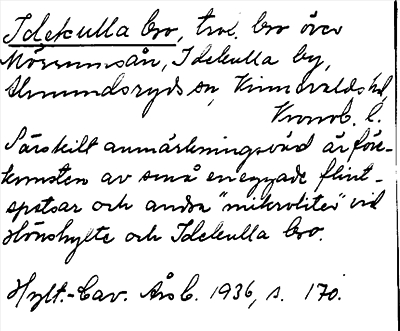 Idekulla bro, trol. bro över
Mörrumsån, Idekulla by,
Almundsryds sn, Kinnevalds hd,
Kronob. l.
Särskilt anmärkningsvärd är före-
komsten av små eneggade flint-
spetsar och andra "mikroliter" vid
Hönshylte och Idekulla bro.
Hylt.-Cav. Årsb. 1936, s. 170.